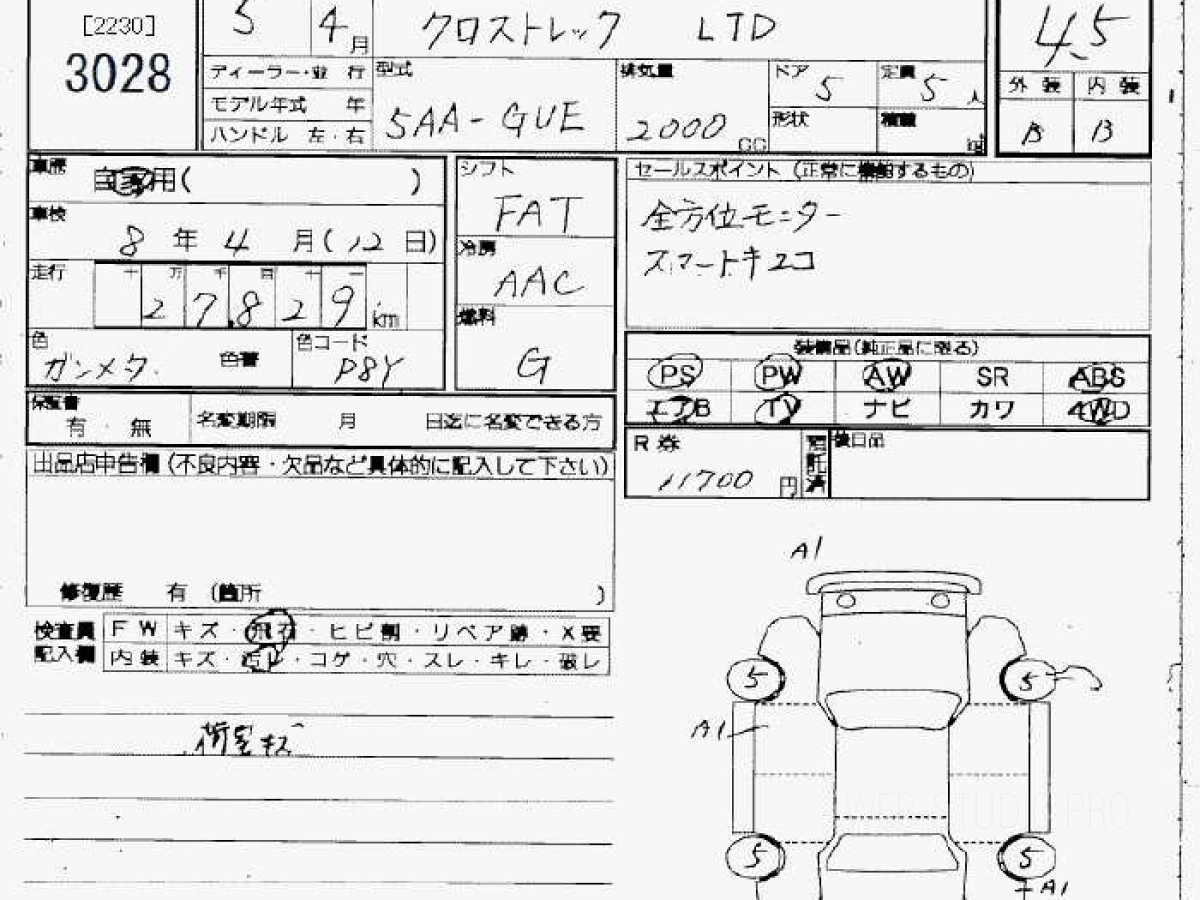 [2230]
3028
5 4月 クロストレック LTD 4.5
ディーラー・並行
モデル年式 年
ハンドル 左・右
型式 5AA-GUE
排気量 2000 CC
ドア 5
形状
定員 5人
積載 kg
外装 内装
B B
車歴 自家用( )
車検 8年4月(12日)
走行 十万千百十一
27829 km
色 ガンメタ. 色替 色コード P8Y
シフト FAT
冷房 AAC
燃料 G
セールスポイント (正常に機能するもの)
全方位モニター
スマートキー2コ
装備品(純正品に限る)
PS PW AW SR ABS
エアB TV ナビ カワ 4WD
保証書 有・無 名変期限 月 日迄に名変できる方
R券 11700円 預託済 後日品
出品店申告欄(不良内容・欠品など具体的に記入して下さい)
修復歴 有 (箇所 )
検査員記入欄
FW キズ・飛石・ヒビ割・リペア跡・X要
内装 キズ・汚レ・コゲ・穴・スレ・キレ・破レ
荷室キズ
A1
5 5
A1
5 5
A1
WEB-STUDIO.PRO